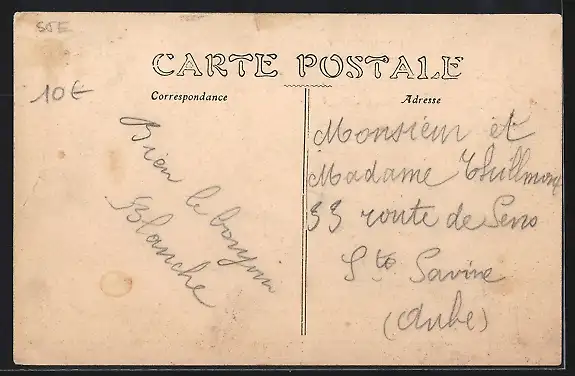 SSE
10€
CARTE POSTALE
Correspondance
Adresse
Bien le bonjour
Blanche
Monsieur et
Madame Thillmont
33 route de Sens
Ste Savine
(Aube)